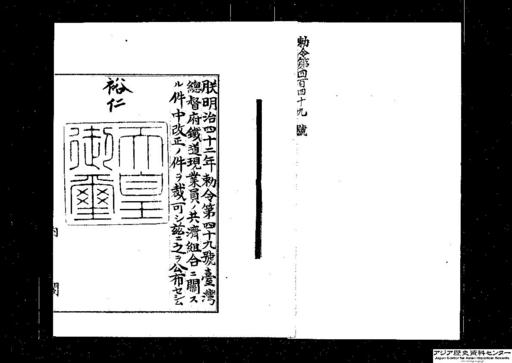 勅令第四百四十九號
朕明治四十二年勅令第四十九號臺灣
總督府鐵道現業員ノ共濟組合ニ關ス
ル件中改正ノ件ヲ裁可シ茲ニ之ヲ公布セシム
裕仁
天皇御璽
内
閣
アジア歴史資料センター
Japan Center for Asian Historical Records